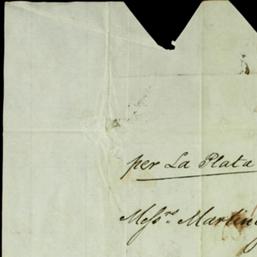 per La Plata
Messrs. Martin